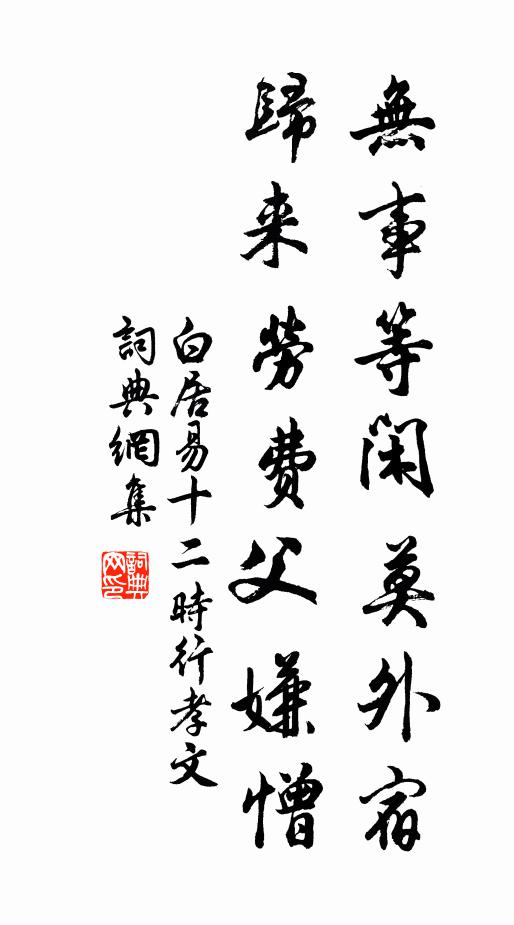 無事等閑莫外宿
歸来勞費父嫌憎
白居易十二時行孝文
詞典網集
詞典網印